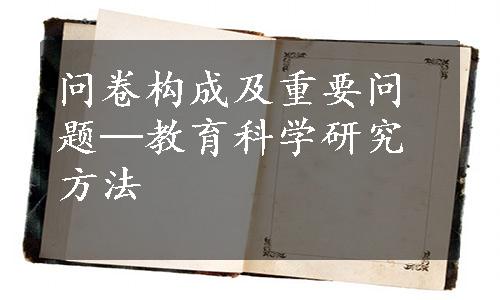 问卷构成及重要问
题—教育科学研究
方法